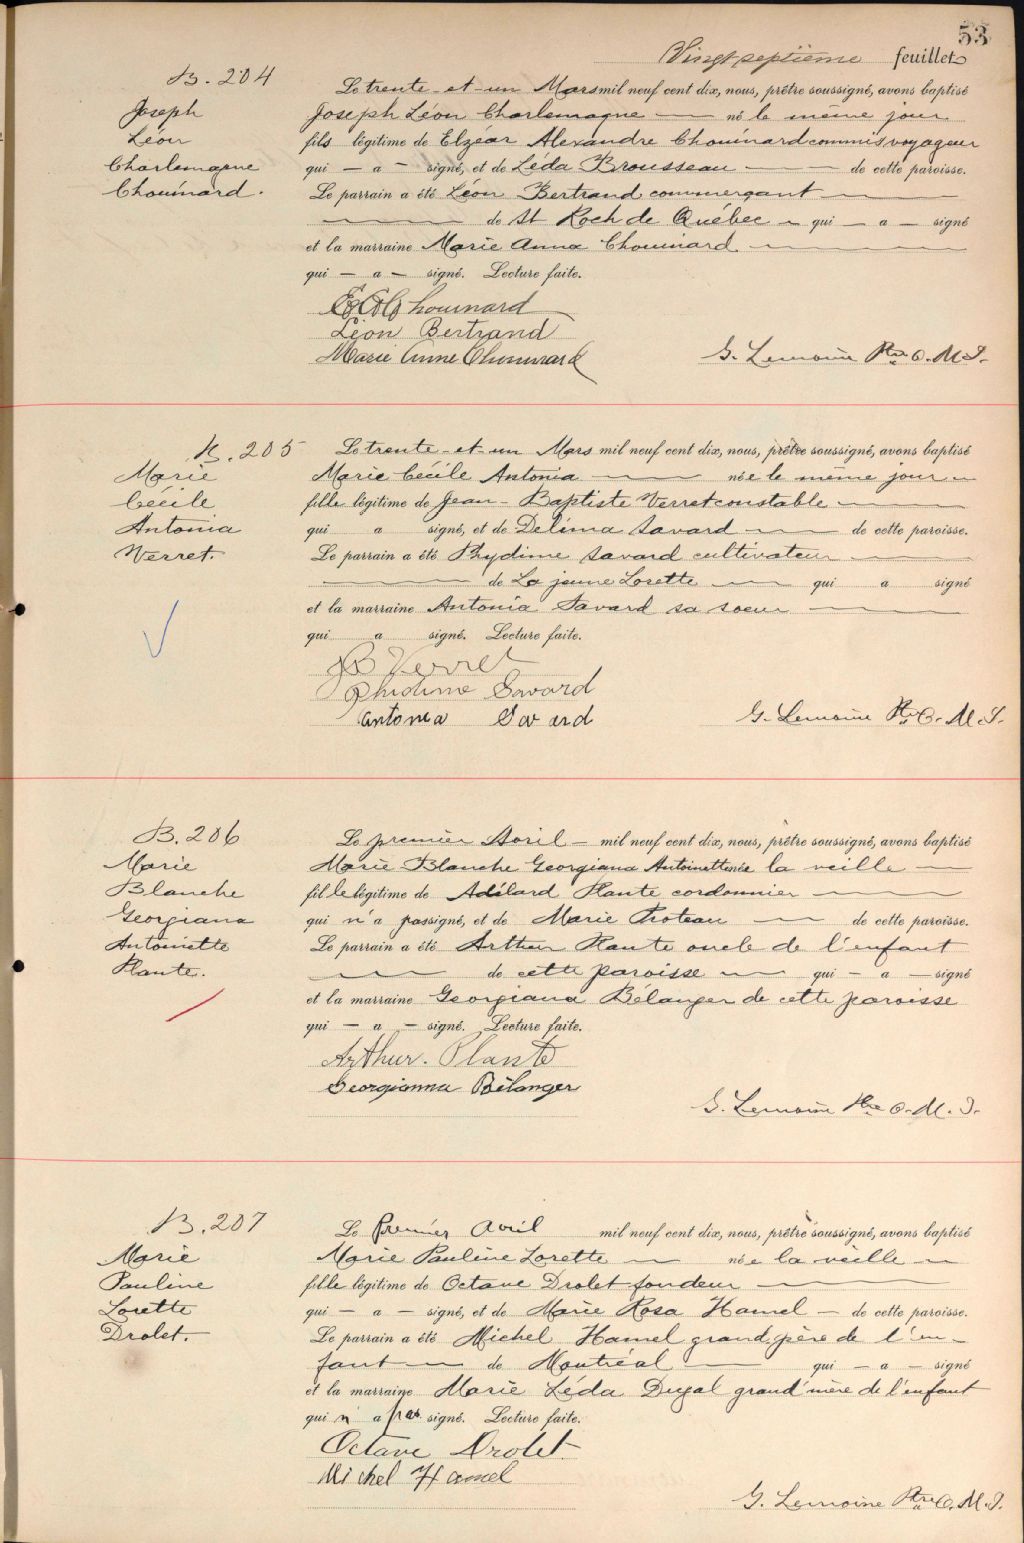 53
Vingt septième feuillet
B. 204
Joseph
Léon
Charlemagne
Chouinard.
Le trente - et - un Mars mil neuf cent dix, nous, prêtre soussigné, avons baptisé
Joseph Léon Charlemagne — né le même jour
fils légitime de Elzéar Alexandre Chouinard commis voyageur
qui — a — signé, et de Léda Brousseau — de cette paroisse.
Le parrain a été Léon Bertrand commerçant —
— de St Roch de Québec — qui — a — signé
et la marraine Marie Anna Chouinard —
qui — a — signé. Lecture faite.
Chouinard
Léon Bertrand
Marie Anne Chouinard
G. Lemoine Ptre O. M. I.
B. 205
Marie
Cécile
Antonia
Verret
Le trente - et - un Mars mil neuf cent dix, nous, prêtre soussigné, avons baptisé
Marie Cécile Antonia — née le même jour —
fille légitime de Jean - Baptiste Verret constable —
qui a signé, et de Delima Savard — de cette paroisse.
Le parrain a été Phydime Savard cultivateur —
— de La jeune Lorette — qui a signé
et la marraine Antonia Savard sa soeur —
qui a signé. Lecture faite.
JB Verret
Phidime Savard
Antonia Savard
G. Lemoine Ptre O. M. I.
B. 206
Marie
Blanche
Georgiana
Antoinette
Plante.
Le premier Avril — mil neuf cent dix, nous, prêtre soussigné, avons baptisé
Marie Blanche Georgiana Antoinette née la veille —
fille légitime de Adélard Plante cordonnier —
qui n'a pas signé, et de Marie Proteau — de cette paroisse.
Le parrain a été Arthur Plante oncle de l'enfant
— de cette paroisse — qui — a — signé
et la marraine Georgiana Bélanger de cette paroisse
qui — a — signé. Lecture faite.
Arthur. Plante
Georgianna Bélanger
G. Lemoine Ptre O. M. I.
B. 207
Marie
Pauline
Lorette
Drolet.
Le premier avril mil neuf cent dix, nous, prêtre soussigné, avons baptisé
Marie Pauline Lorette — née la veille —
fille légitime de Octave Drolet fondeur —
qui — a — signé, et de Marie Rosa Hamel — de cette paroisse.
Le parrain a été Michel Hamel grand père de l'en-
fant — de Montréal — qui — a — signé
et la marraine Marie Léda Dugal grand'mère de l'enfant
qui n' a pas signé. Lecture faite.
Octave Drolet.
Michel Hamel
G. Lemoine Ptre O. M. I.